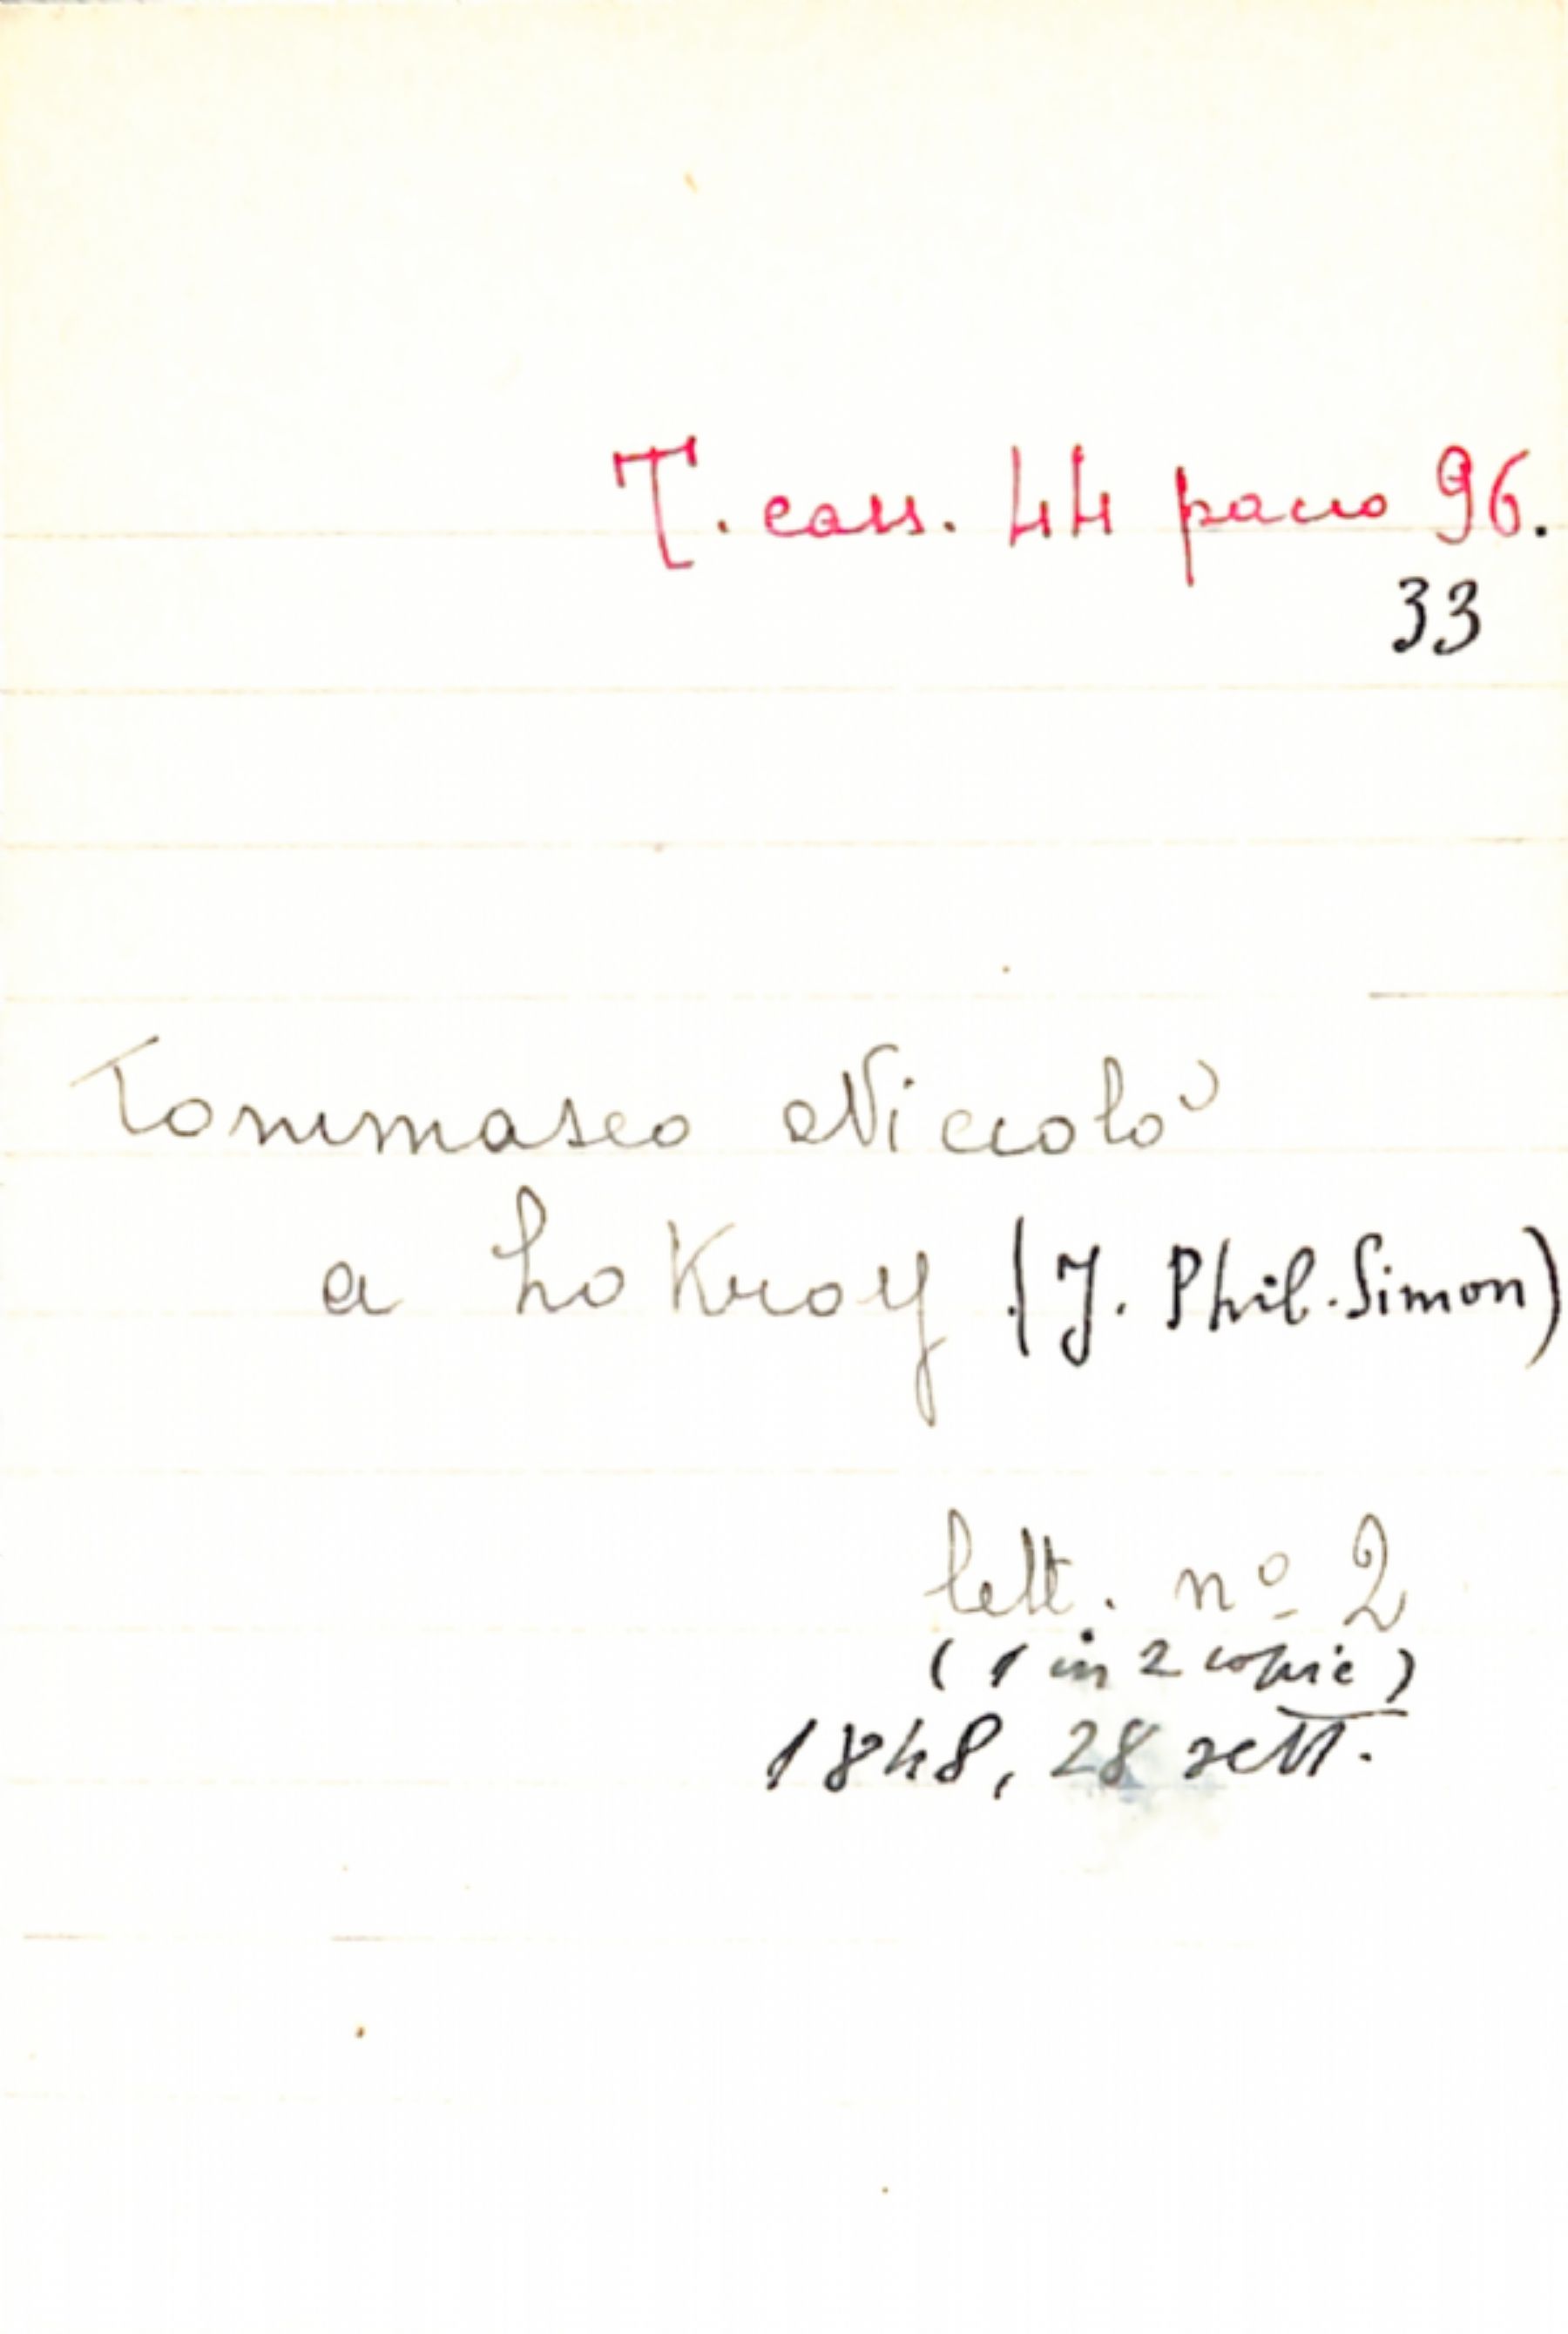 T. cass. 44 pacco 96.
33
Tommaseo Niccolò
a Lokroy (J. Phil. Simon)
lett. nº 2
(1 in 2 copie)
1848, 28 sett.